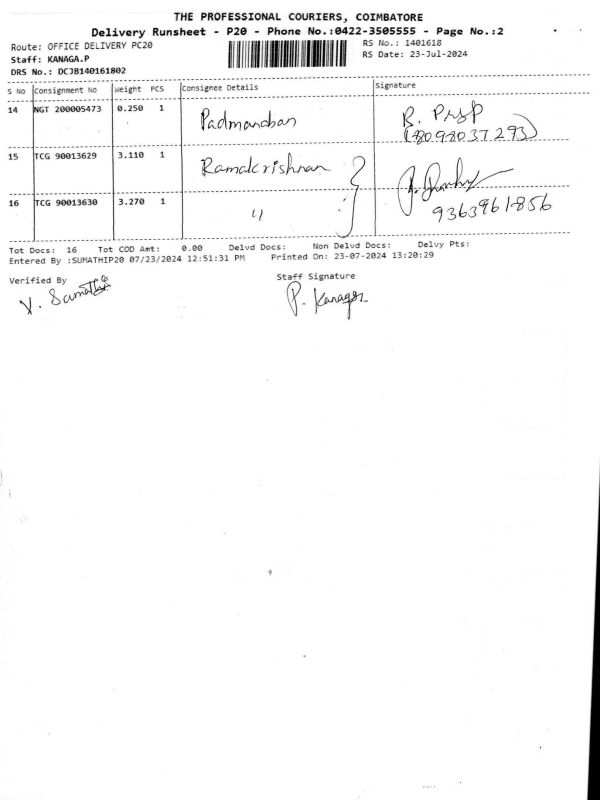 THE PROFESSIONAL COURIERS, COIMBATORE
Delivery Runsheet - P20 - Phone No.:0422-3505555 - Page No.:2
Route: OFFICE DELIVERY PC20
RS No.: 1401618
Staff: KANAGA.P
RS Date: 23-Jul-2024
DRS No.: DCJB140161802
S No Consignment No Weight PCS Consignee Details Signature
14 NGT 200005473 0.250 1 Padmanaban
(8098037293)
15 TCG 90013629 3.110 1 Ramakrishnan
16 TCG 90013630 3.270 1 "
9363961856
Tot Docs: 16 Tot COD Amt: 0.00 Delvd Docs: Non Delvd Docs: Delvy Pts:
Entered By :SUMATHIP20 07/23/2024 12:51:31 PM Printed On: 23-07-2024 13:20:29
Verified By Staff Signature
V. Sumathi P. Kanaga